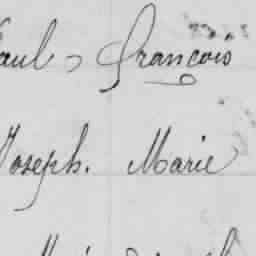 Paul François
Joseph. Marie